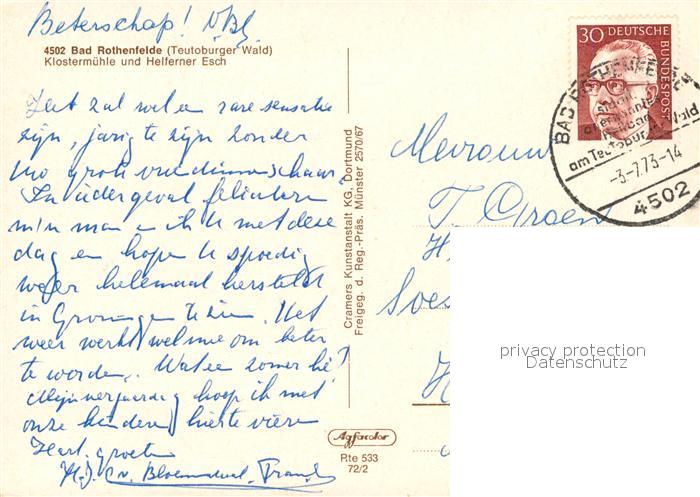 Beterschap!
4502 Bad Rothenfelde (Teutoburger Wald)
Klostermühle und Helferner Esch
Het zal wel een rare sensatie
zijn, jarig te zijn zonder
grote vriendinnenschaar.
In ieder geval feliciteren
m'n man en ik u met deze
dag en hopen u spoedig
weer helemaal hersteld
in Groningen te zien. Het
weer werkt wel mee om beter
te worden. Wat een zomer hè!
Mijn verjaardag hoop ik met
onze kinderen hier te vieren
Hart. groeten
v. Bloemendaal
Cramers Kunstanstalt KG, Dortmund
Freigeg. d. Reg.-Präs. Münster 2570/67
Agfacolor
Rte 533
72/2
30 DEUTSCHE
BUNDESPOST
BAD ROTHENFELDE
am Teutobur. Wald
-3.-7.73-14
4502
Mevrouw
T. Groen
Soes
privacy protection
Datenschutz